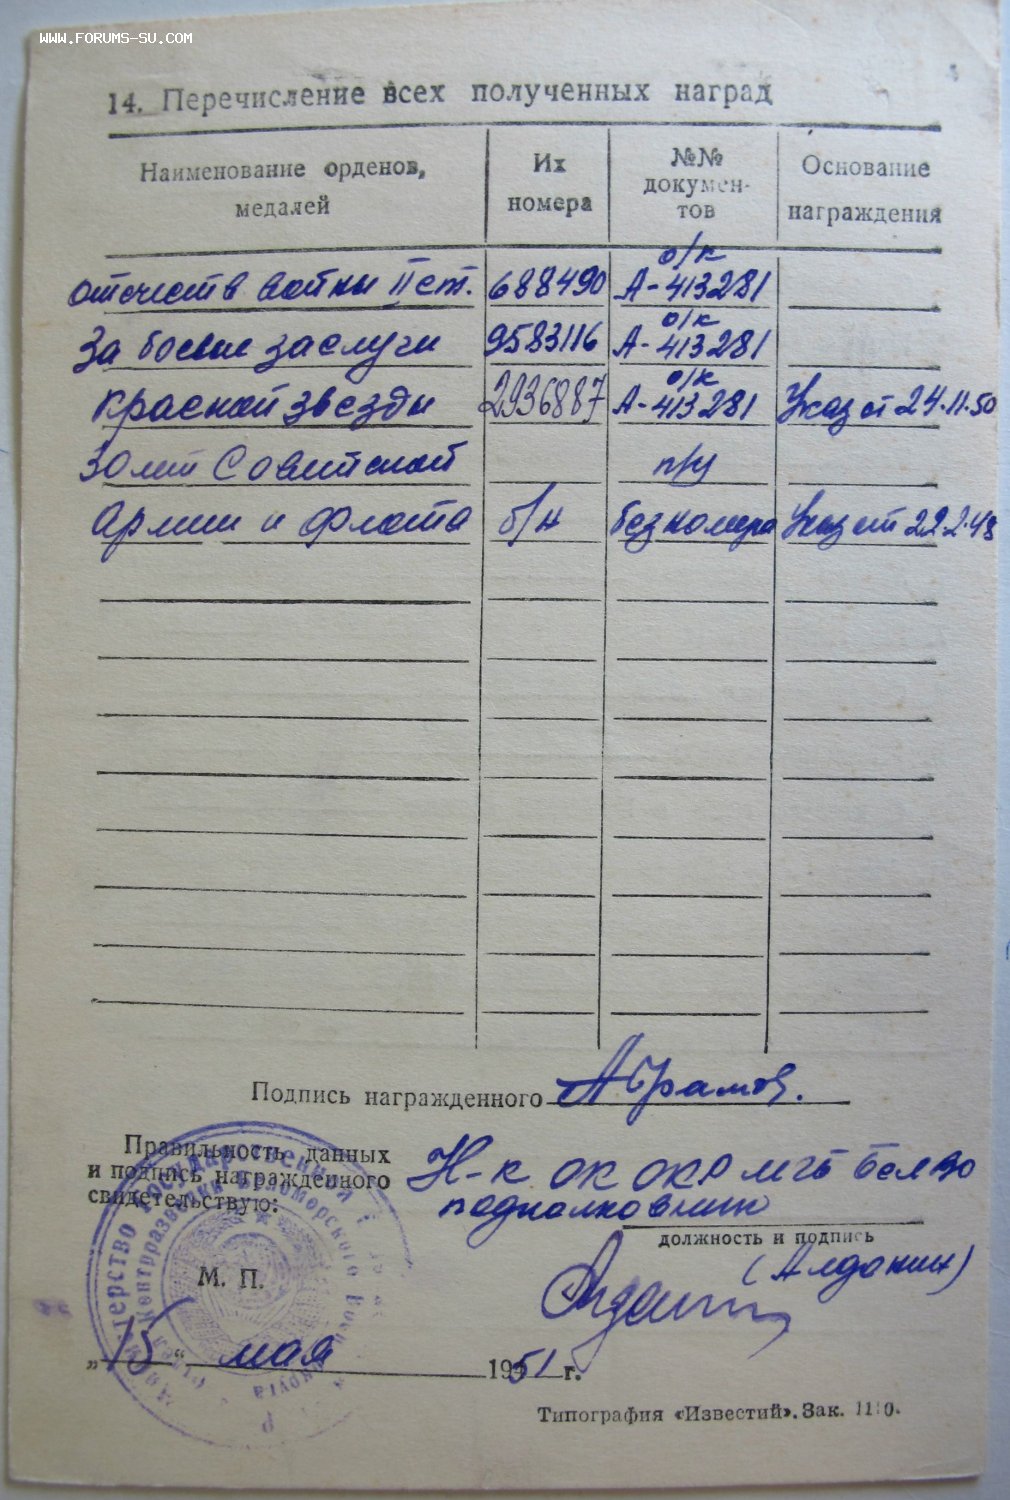 WWW.FORUMS-SU.COM
14. Перечисление всех полученных наград
Наименование орденов, медалей
Их номера
№№ докумен-тов
Основание награждения
о/к
отечеств войны II ст. 688490 А-413281
о/к
За боевые заслуги 9583116 А-413281
о/к
Красной звезды 2936887 А-413281 Указ от 24.11.50
30 лет Советской п/у
Армии и Флота б/н без номера Указ от 22.2.48
Подпись награжденного Абрамов.
Правильность данных
и подпись награжденного
свидетельствую:
Н-к ОК ОКР МГБ Бел ВО
подполковник
должность и подпись
(Алданин)
М. П.
„15“ мая 1951 г.
Типография «Известий». Зак. 1110.